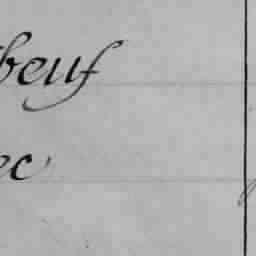 beuf
ec